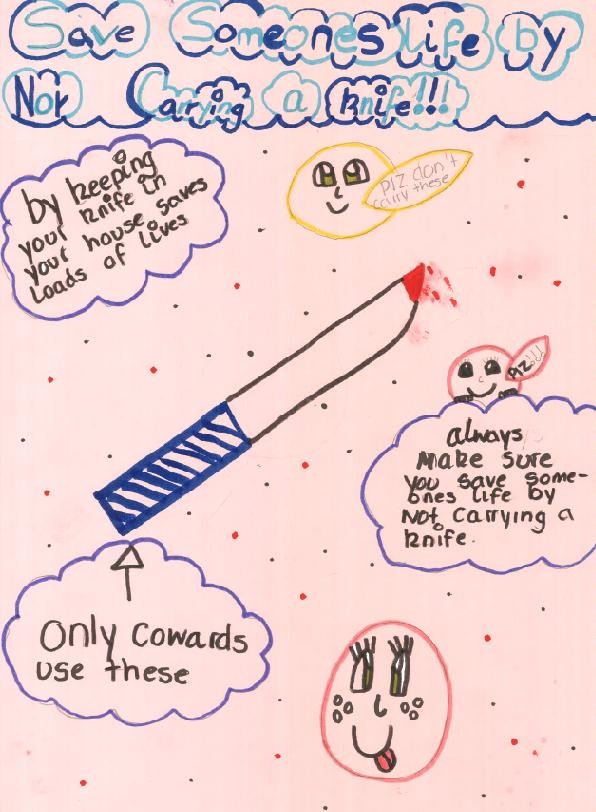 Save Someones life by
Not Carrying a knife!!!
by keeping
your knife in
your house saves
Loads of lives
PlZ don't
carry these
PlZ!!!
always
make sure
you save some-
ones life by
Not carrying a
knife.
Only cowards
use these